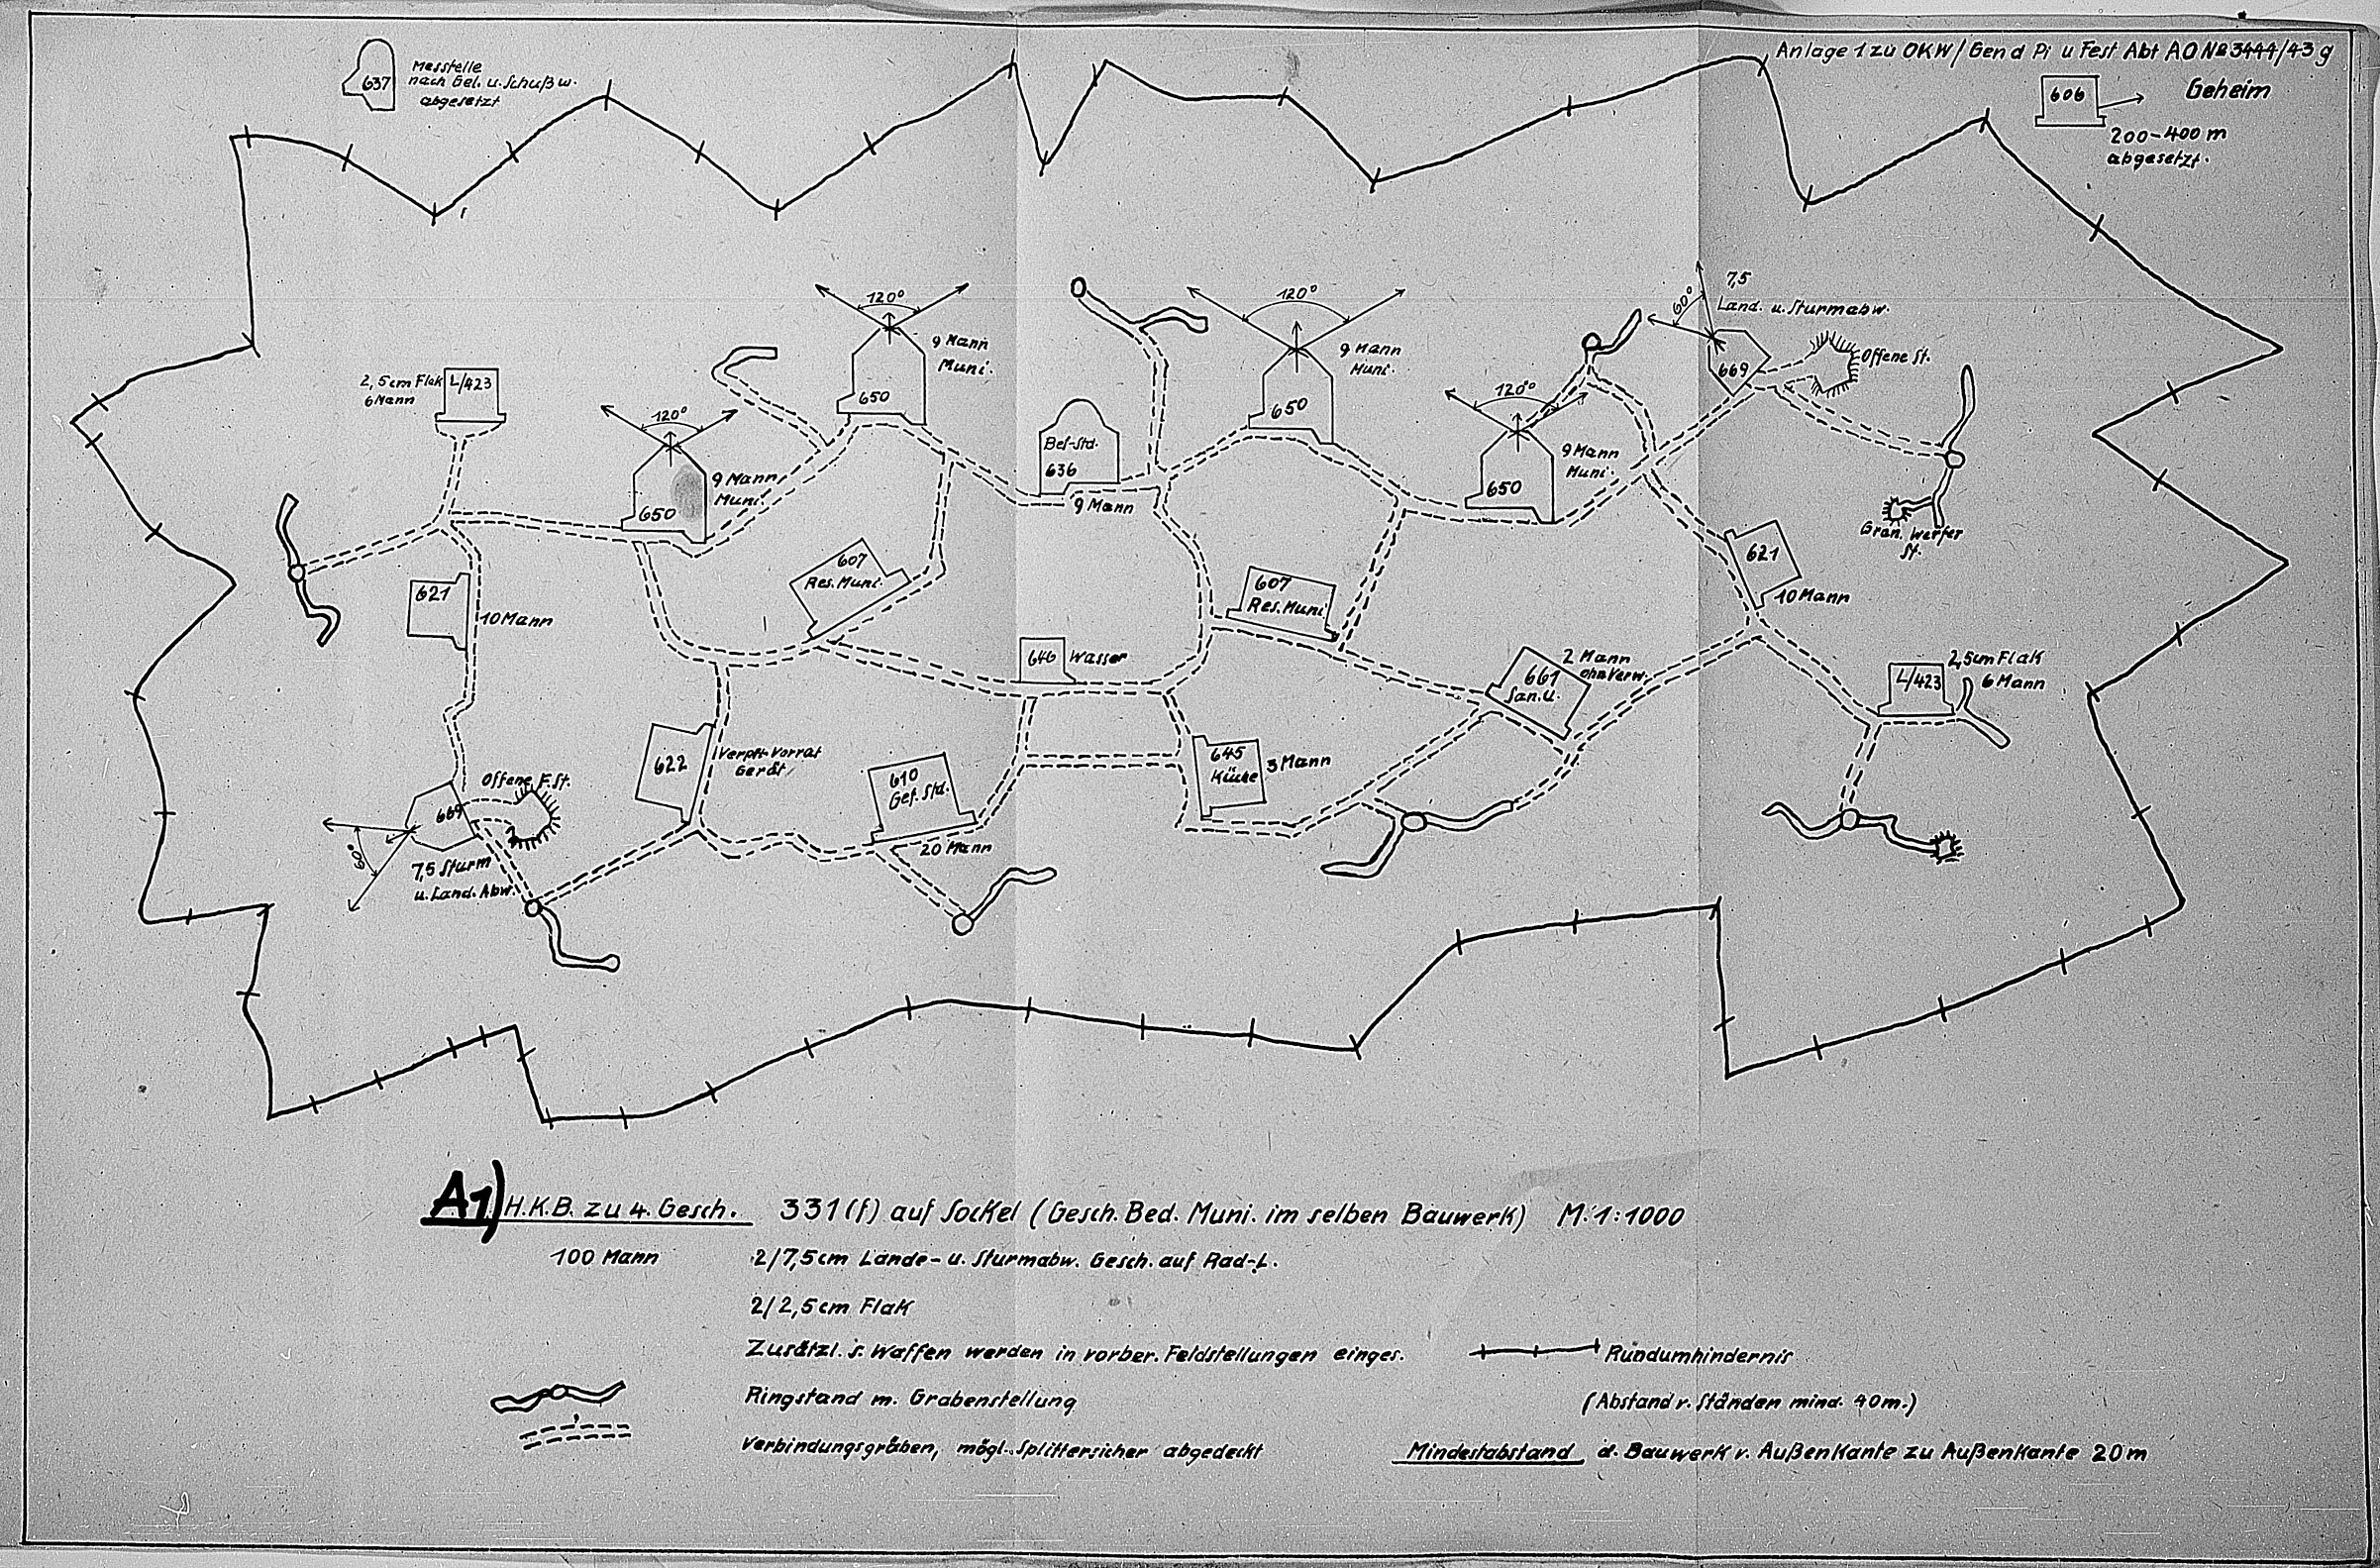 Anlage 1 zu OKW/Gen d Pi u Fest Abt AO № 3444/43 g
Geheim
606
200-400 m
abgesetzt.
637
Messtelle
nach Gel. u. Schuß w.
abgesetzt
120°
9 Mann
Muni.
650
120°
9 Mann
Muni.
650
7,5
Land. u. Sturmabw.
60°
669
Offene St.
2,5cm Flak
6 Mann
L/423
120°
9 Mann
Muni
650
Bef-Std.
636
9 Mann
120°
9 Mann
Muni.
650
Gran. Werfer
St.
621
10 Mann
607
Res. Muni.
607
Res. Muni
621
10 Mann
646
Wasser
661
San. U.
2 Mann
ohn. Verw.
L/423
2,5cm Flak
6 Mann
622
Verpfl. Vorrat
Gerät
610
Gef. Std.
20 Mann
645
Küche
3 Mann
Offene F. St.
669
60°
7,5 Sturm
u. Land. Abw.
A1) H.K.B. zu 4. Gesch. 331(f) auf Sockel (Gesch. Bed. Muni. im selben Bauwerk) M. 1:1000
100 Mann 2/7,5cm Lande- u. Sturmabw. Gesch. auf Rad-L.
2/2,5cm Flak
Zusätzl. s. Waffen werden in vorber. Feldstellungen einges. Rundumhindernis
Ringstand m. Grabenstellung (Abstand v. Ständen mind. 40m.)
Verbindungsgräben, mögl. splittersicher abgedeckt Mindestabstand d. Bauwerk v. Außenkante zu Außenkante 20 m